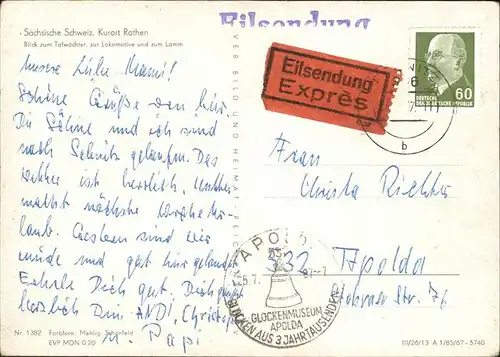 Sächsische Schweiz. Kurort Rathen
Blick zum Talwächter, zur Lokomotive und zum Lamm
Eilsendung
Eilsendung
Exprès
60
DEUTSCHE
DEMOKRATISCHE REPUBLIK
b
VEB BILD UND HEIMAT REICHENBACH
Unsere liebe Mami!
Schöne Grüße von hier.
Die Söhne und ich sind
nach gelaufen. Das
Wetter ist herrlich,
macht nächste Woche
laub. Gestern sind wir
müde und gut hier gelandet
Erhole Dich gut. Dich grüßt
herzlich Dein ANDI, Christoph
u. Papi
Frau
Christa Richter
532 Apolda
Str. 76
APOLDA
GLOCKENMUSEUM
APOLDA
GLOCKEN AUS 3 JAHRTAUSENDEN
Nr. 1382 Farbfoto: Mehlig, Schönfeld
EVP MDN 0.20
III/26/13 A 1/85/67 - 5740